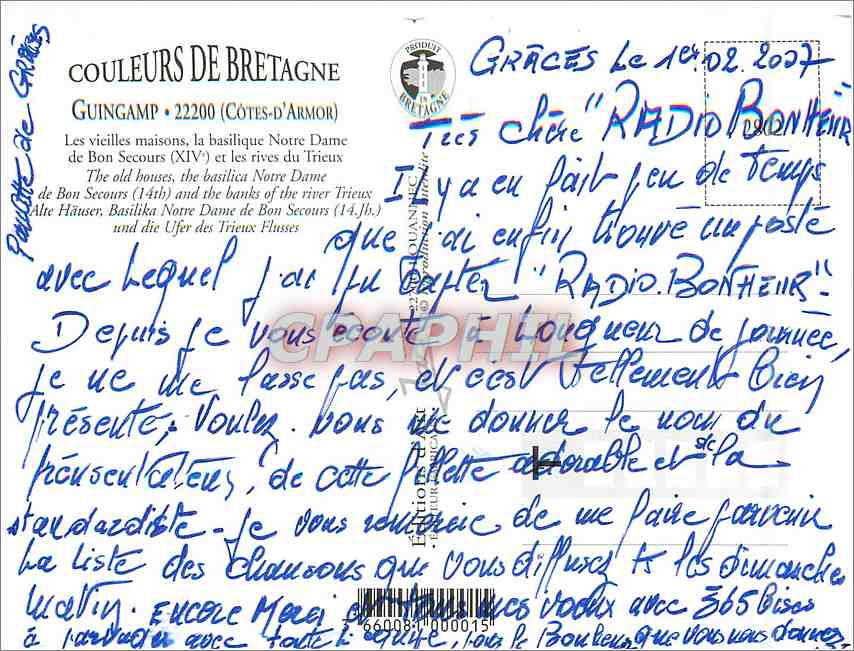 Paulette de Grâces
COULEURS DE BRETAGNE
GUINGAMP • 22200 (CÔTES-D'ARMOR)
Les vieilles maisons, la basilique Notre Dame
de Bon Secours (XIVe) et les rives du Trieux
The old houses, the basilica Notre Dame
de Bon Secours (14th) and the banks of the river Trieux
Alte Häuser, Basilika Notre Dame de Bon Secours (14.Jh.)
und die Ufer des Trieux Flusses
PRODUIT EN BRETAGNE
GRÂCES Le 1er.02.2007
Très chère "RADIO BONHEUR
Il y a en fait peu de temps
que j'ai enfin trouvé un poste
avec lequel j'ai pu capter "RADIO.BONHEUR"-
Depuis je vous écoute à longueur de journée,
je ne me lasse pas, et c'est tellement bien
présenté, Voulez-vous me donner le nom du
présentateur, de cette fillette adorable et de la
standardiste - je vous remercie de me faire parvenir
La liste des chansons que vous diffusez ts les dimanches
matin. ENCORE Merci et tous mes vœux avec 365 Bises
à partager avec toute l'équipe, pour le Bonheur que vous nous donnez
Reproduction interdite
Éditions JACK
CPAPHIL
3 660081 000015